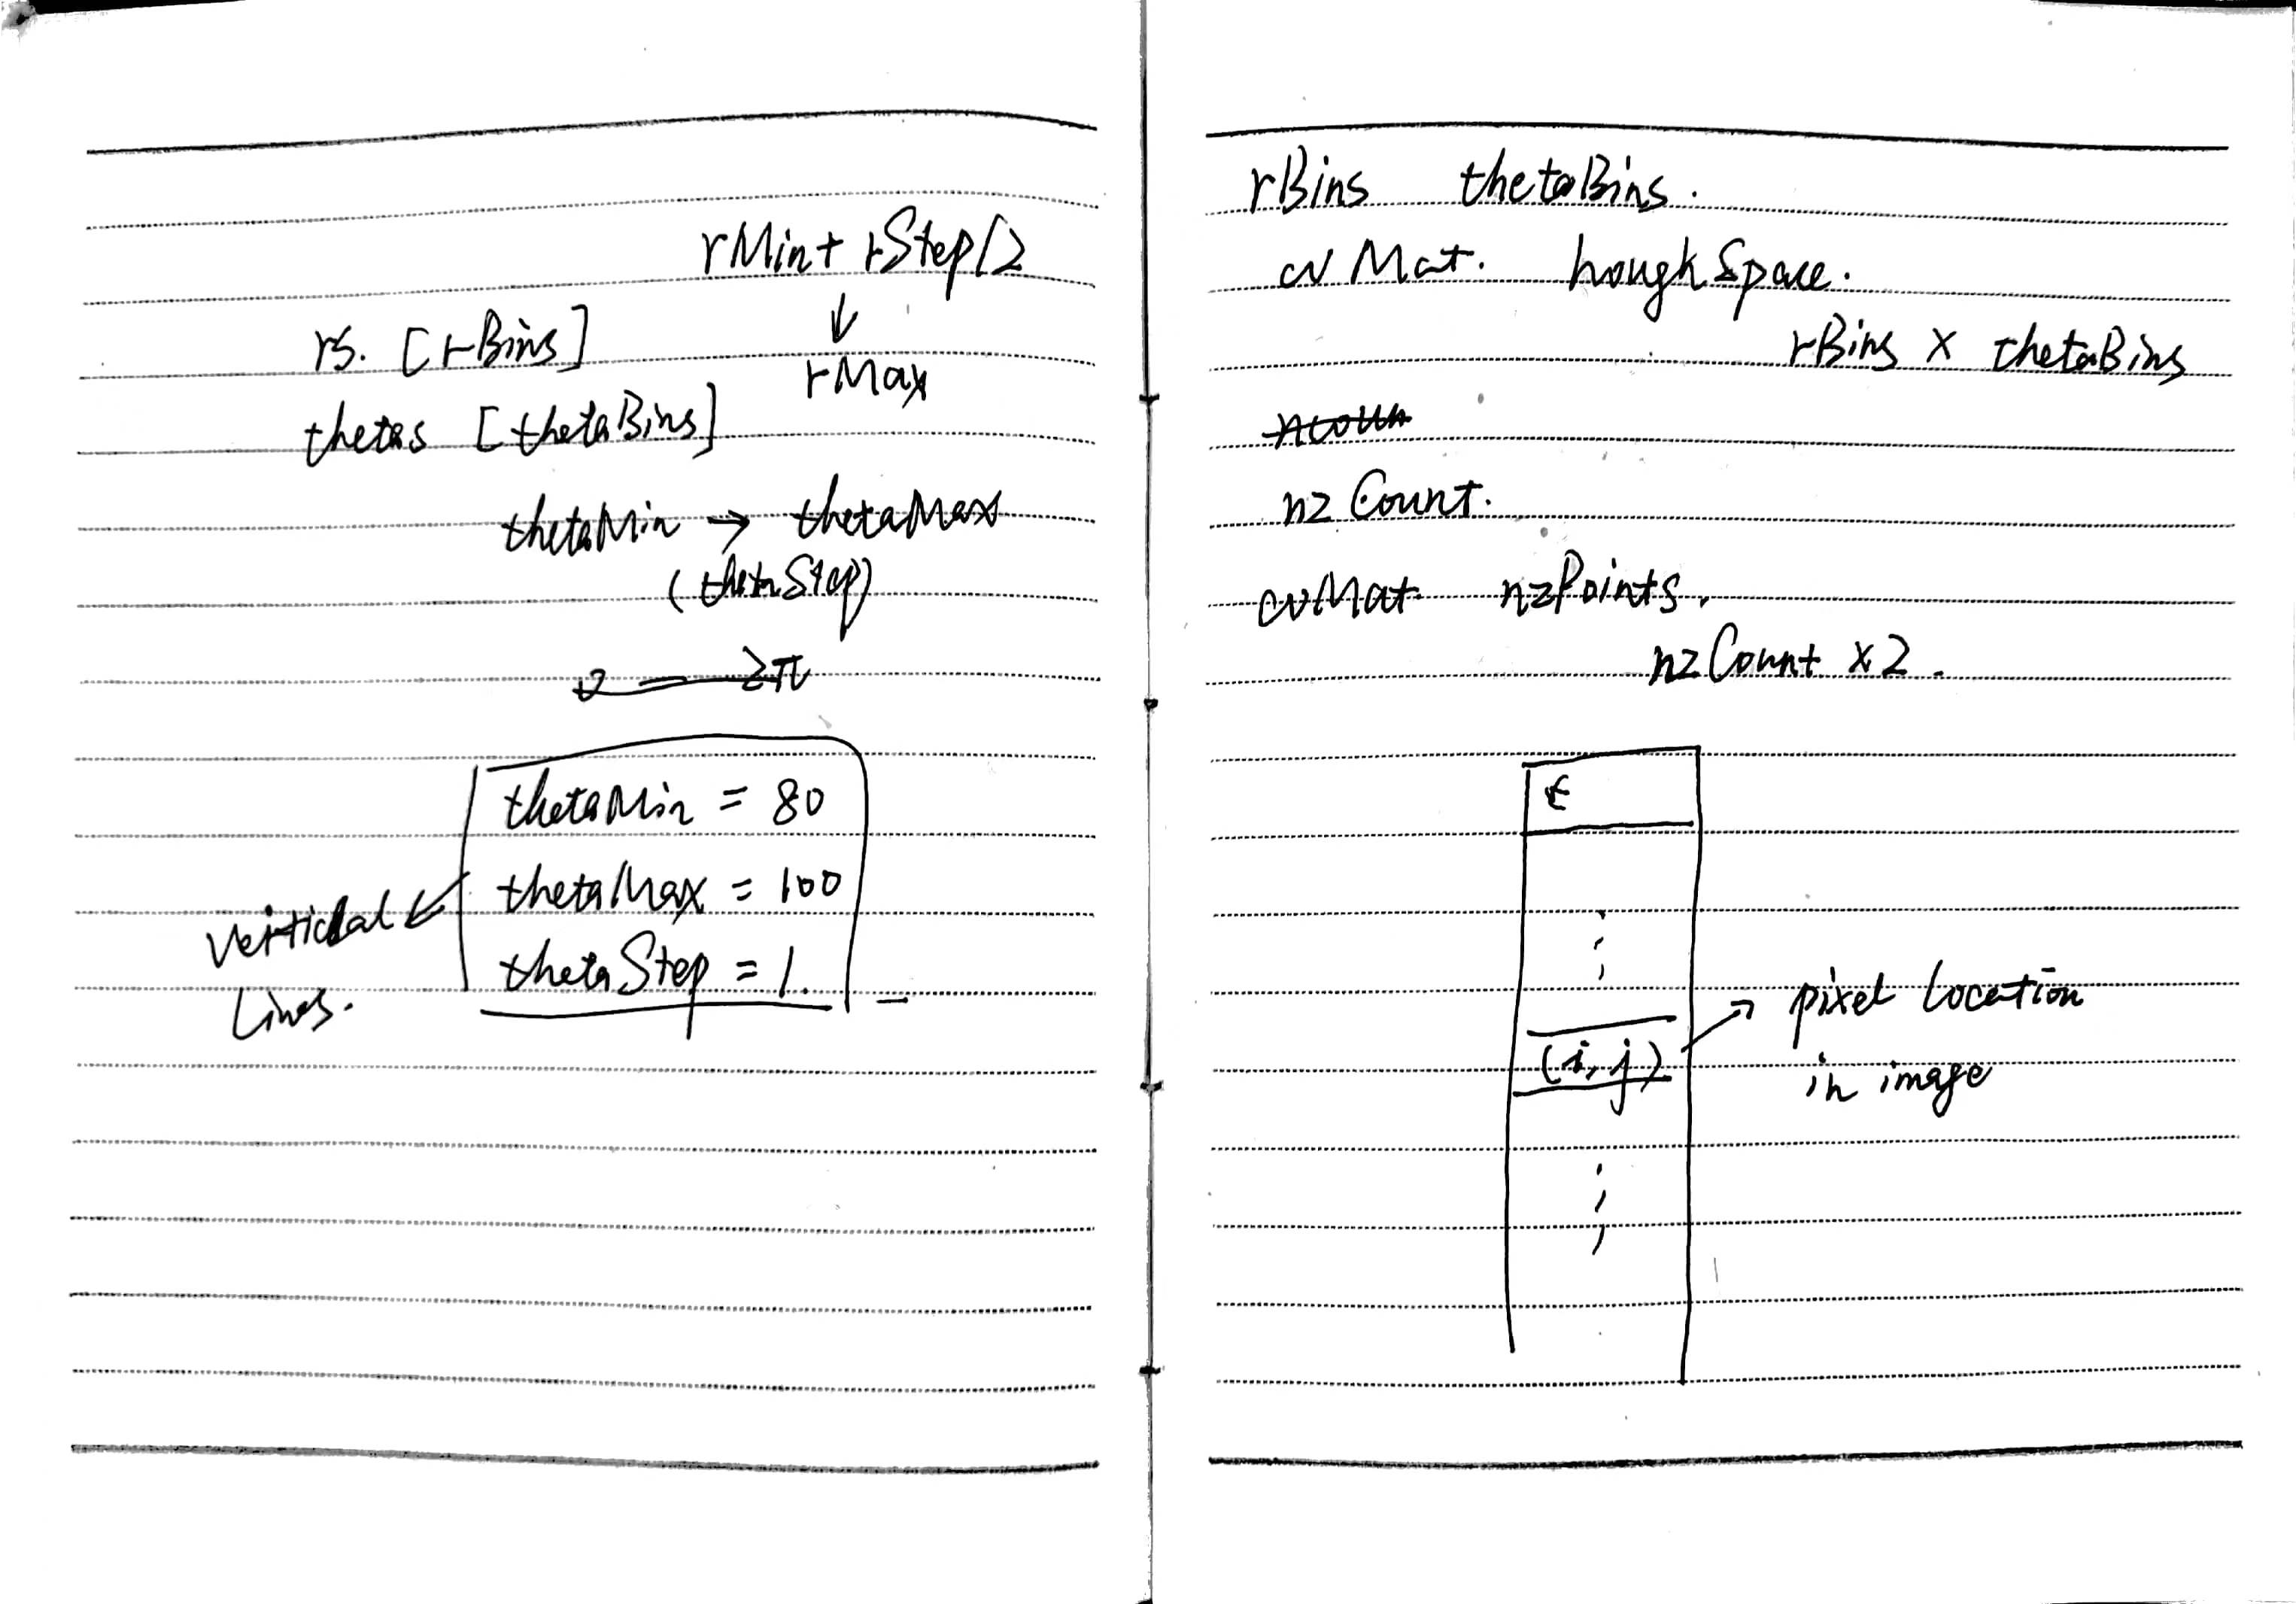 rMin + rStep/2
↓
rs. [rBins] rMax
thetas [thetaBins]
thetaMin → thetaMax
(thetaStep)
thetaMin = 80
thetaMax = 100
thetaStep = 1.
Vertical
Lines.
rBins thetaBins.
cvMat. houghSpace.
rBins × thetaBins
nzCount.
cvMat nzPoints.
nzCount × 2.
(i, j) → pixel location
in image